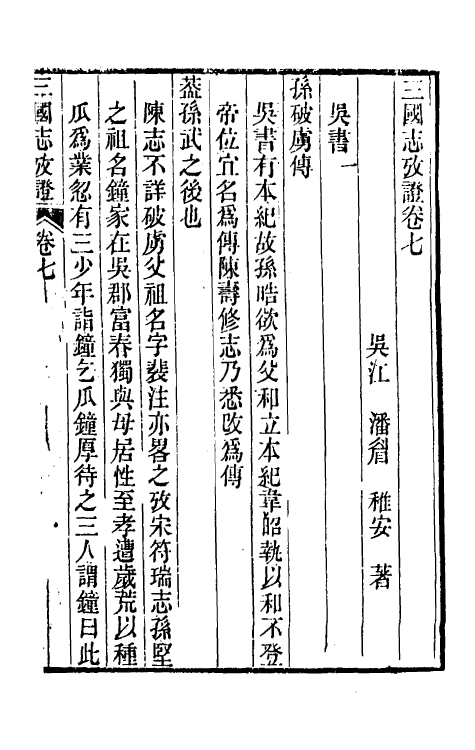 三國志攷證卷七
吳江　潘眉　稚安　著
吳書一
孫破虜傳
吳書有本紀故孫晧欲為父和立本紀韋昭執以和不登
帝位宜名為傳陳壽修志乃悉改為傳
葢孫武之後也
陳志不詳破虜父祖名字裴注亦畧之攷宋符瑞志孫堅
之祖名鐘家在吳郡富春獨與母居性至孝遭歲荒以種
瓜為業忽有三少年詣鐘乞瓜鐘厚待之三人謂鐘曰此
三國志攷證　卷七